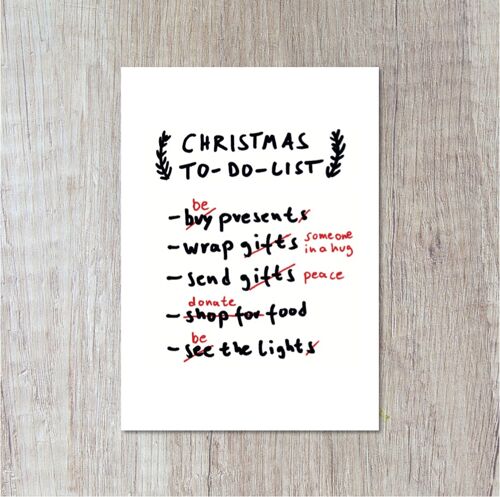 CHRISTMAS
TO-DO-LIST
be
- buy presents
- wrap gifts someone in a hug
- send gifts peace
donate
- shop for food
be
- see the lights